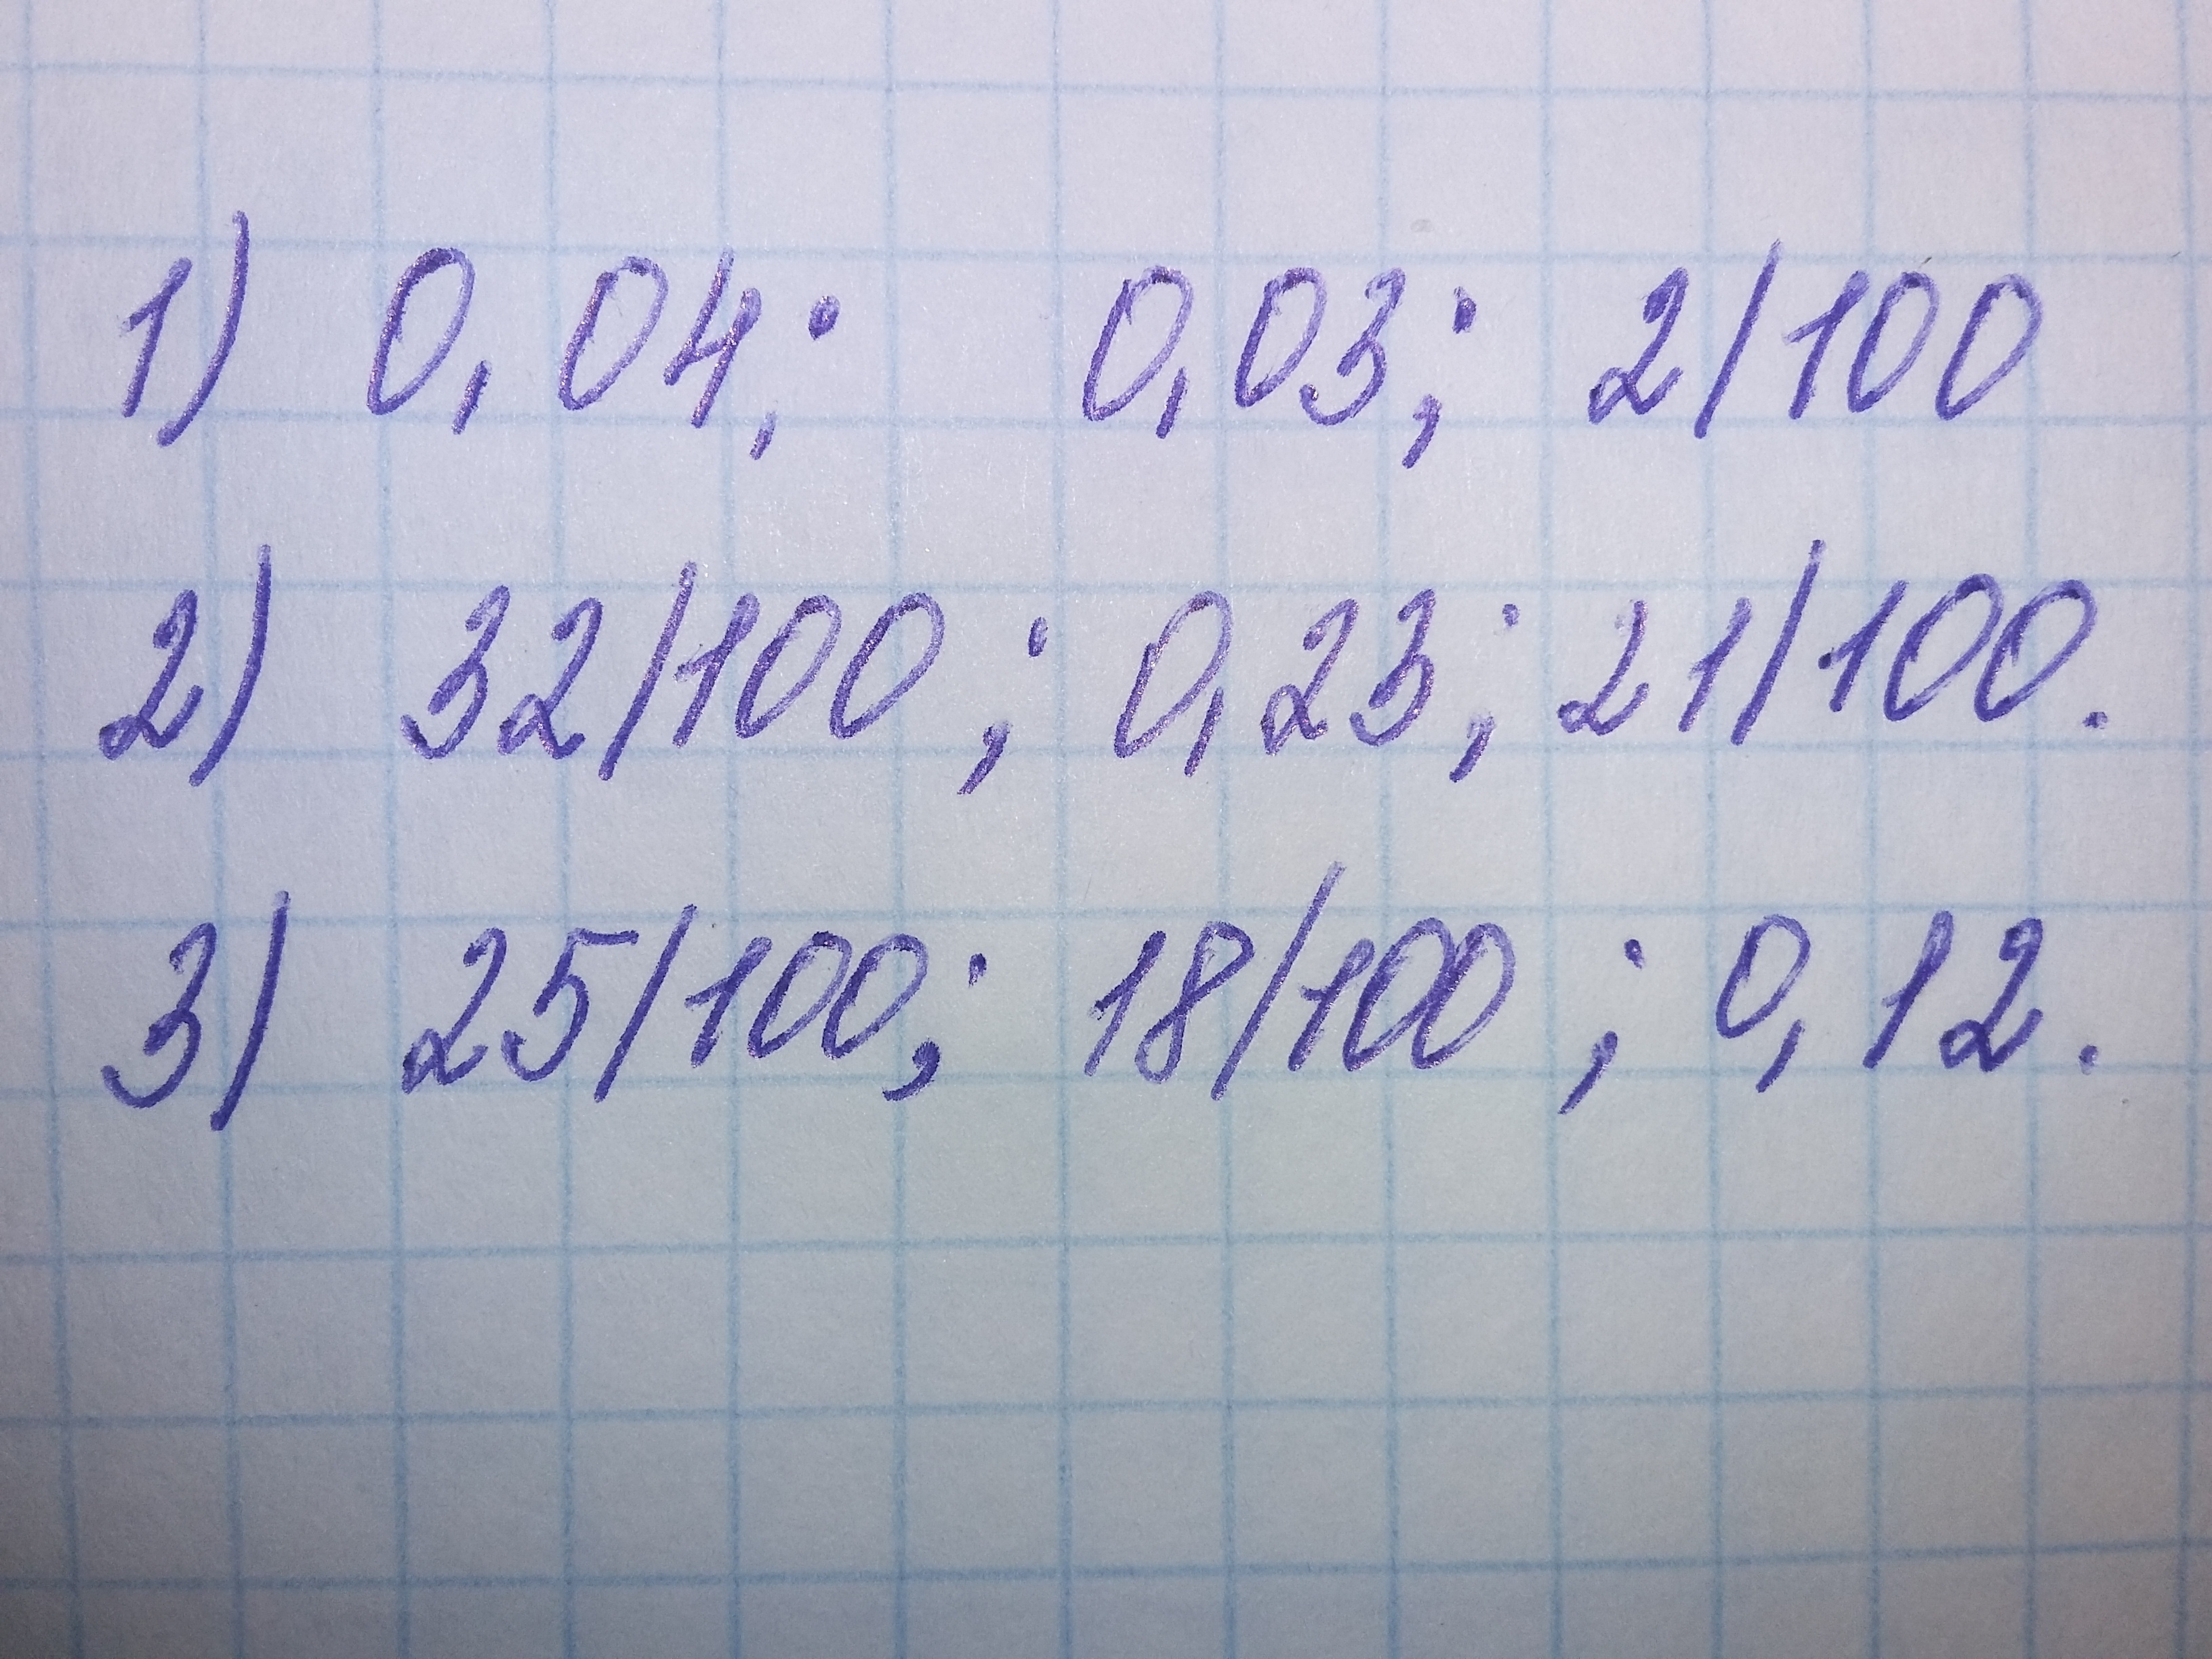 1) 0,04; 0,03; 2/100
2) 32/100; 0,23; 21/100.
3) 25/100; 18/100; 0,12.